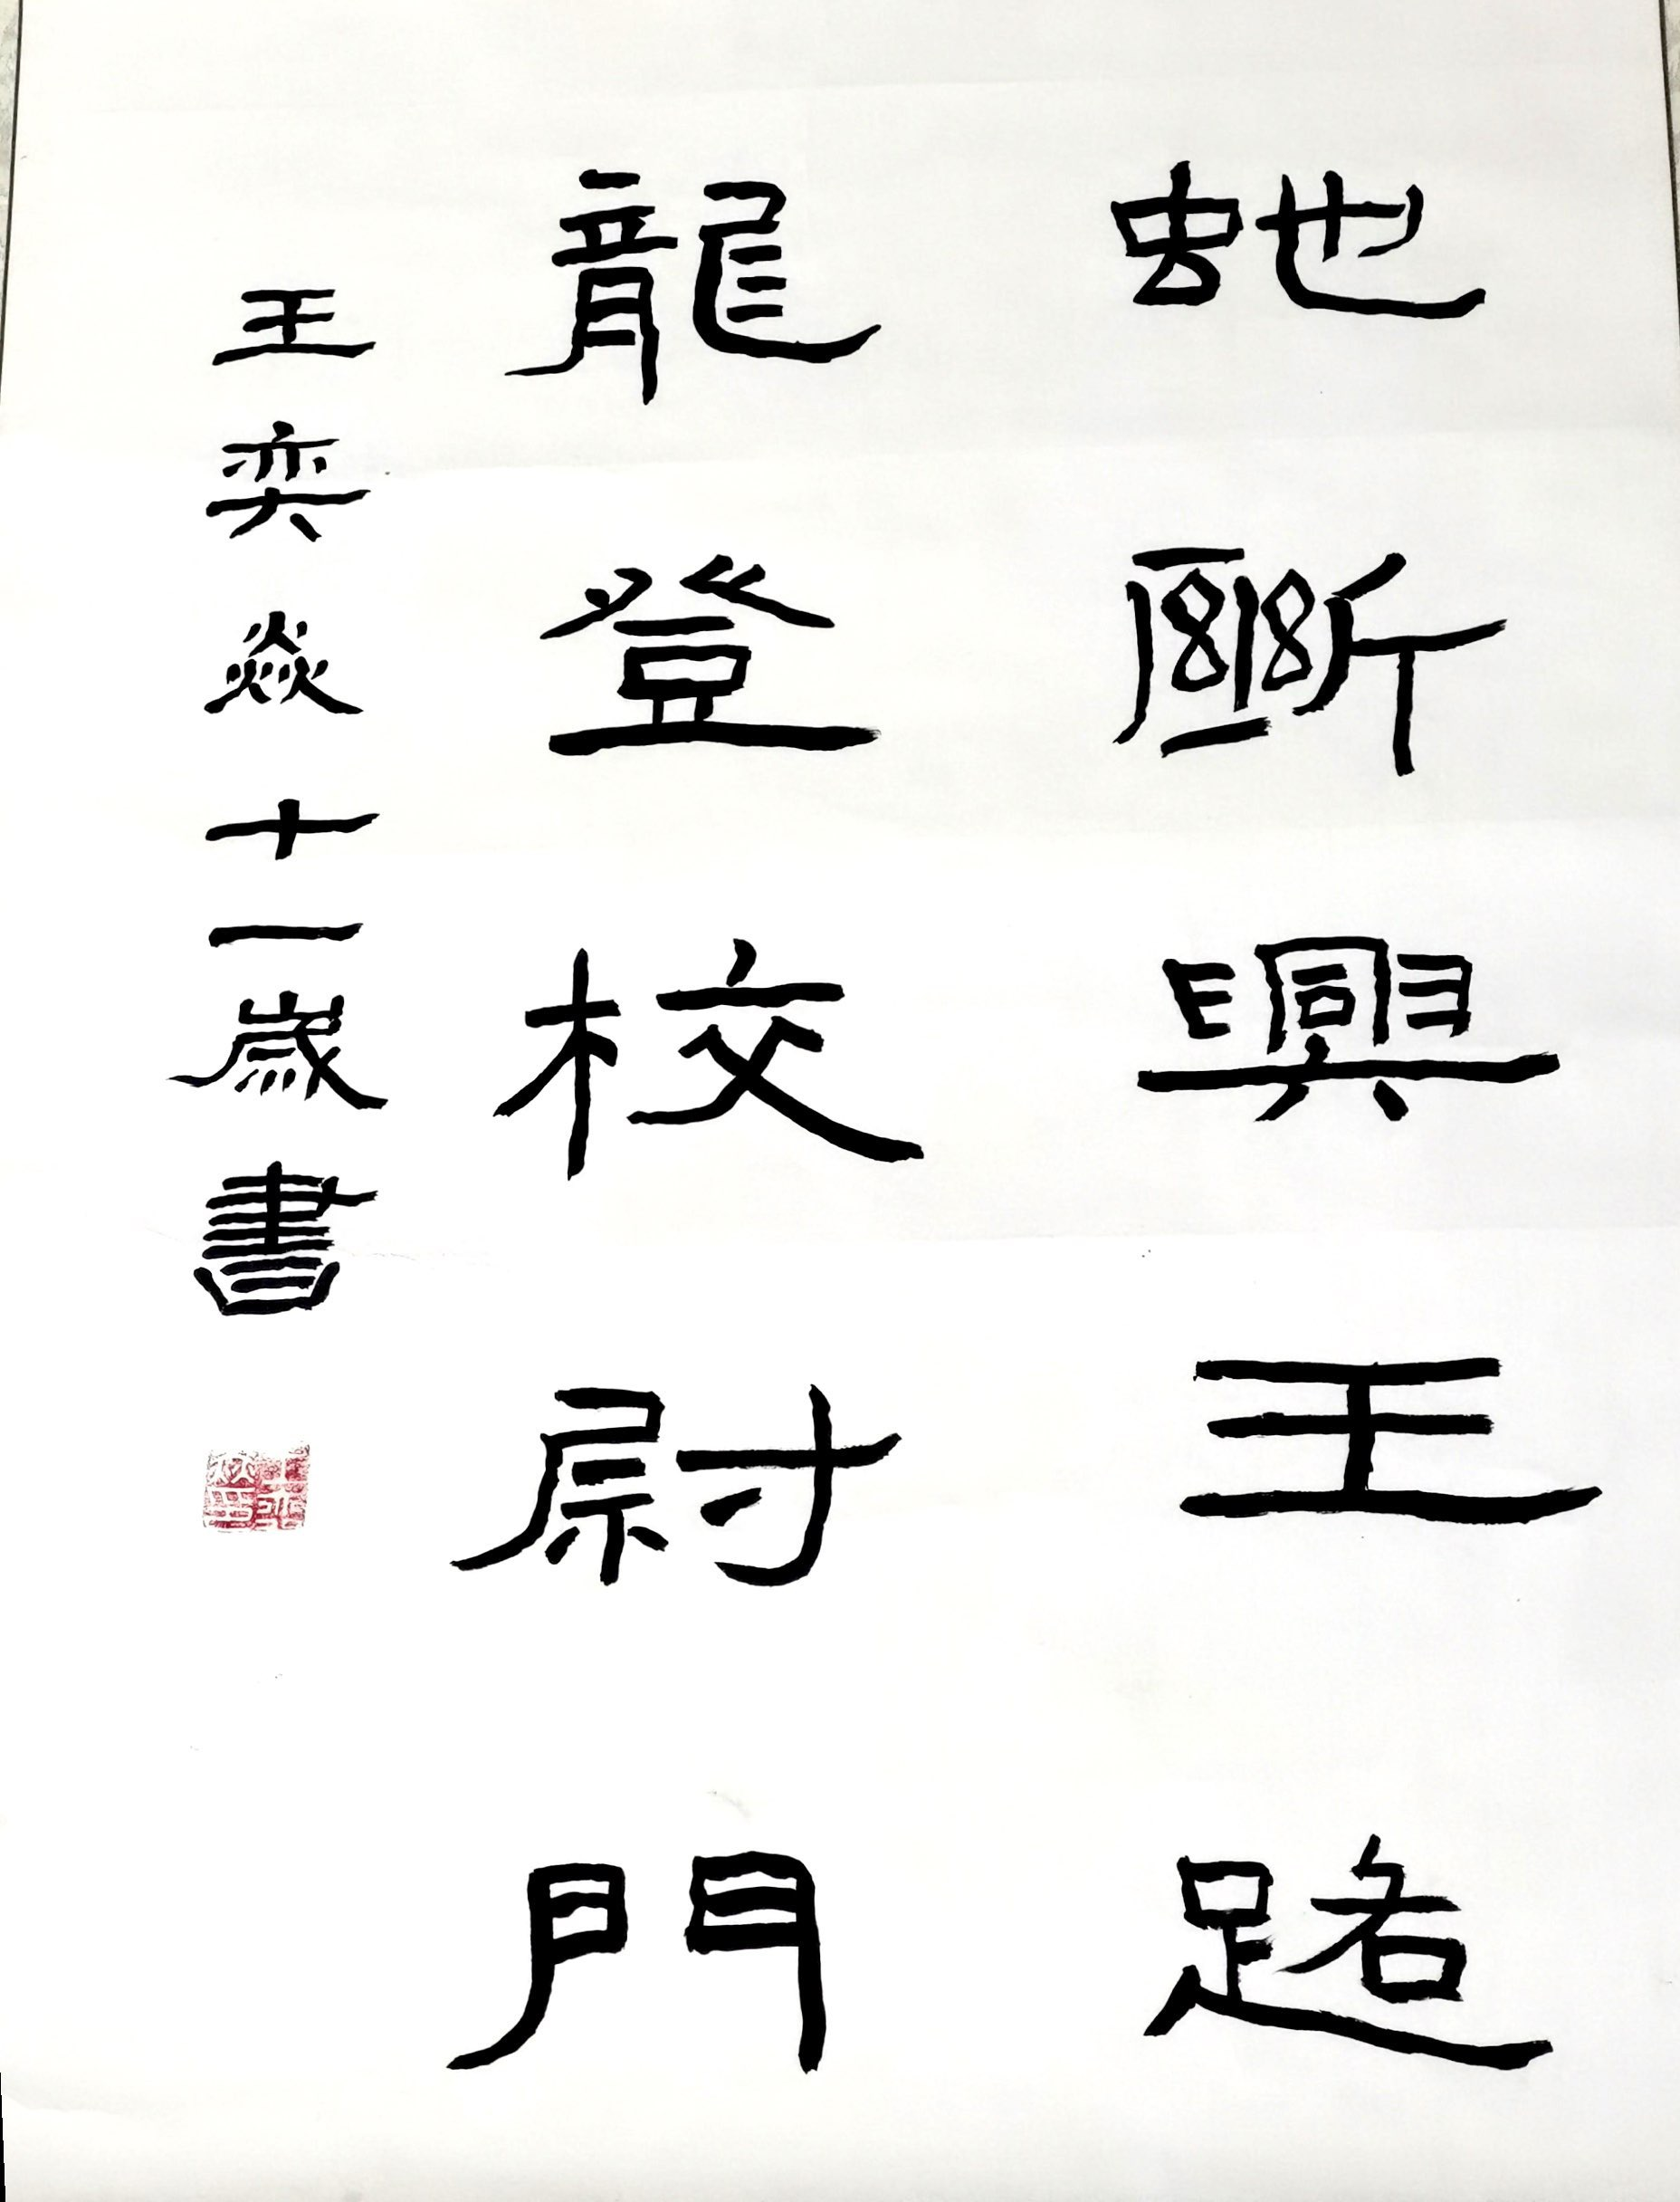 蛇斷興王路
龍登校尉門
王奕焱十一歲書